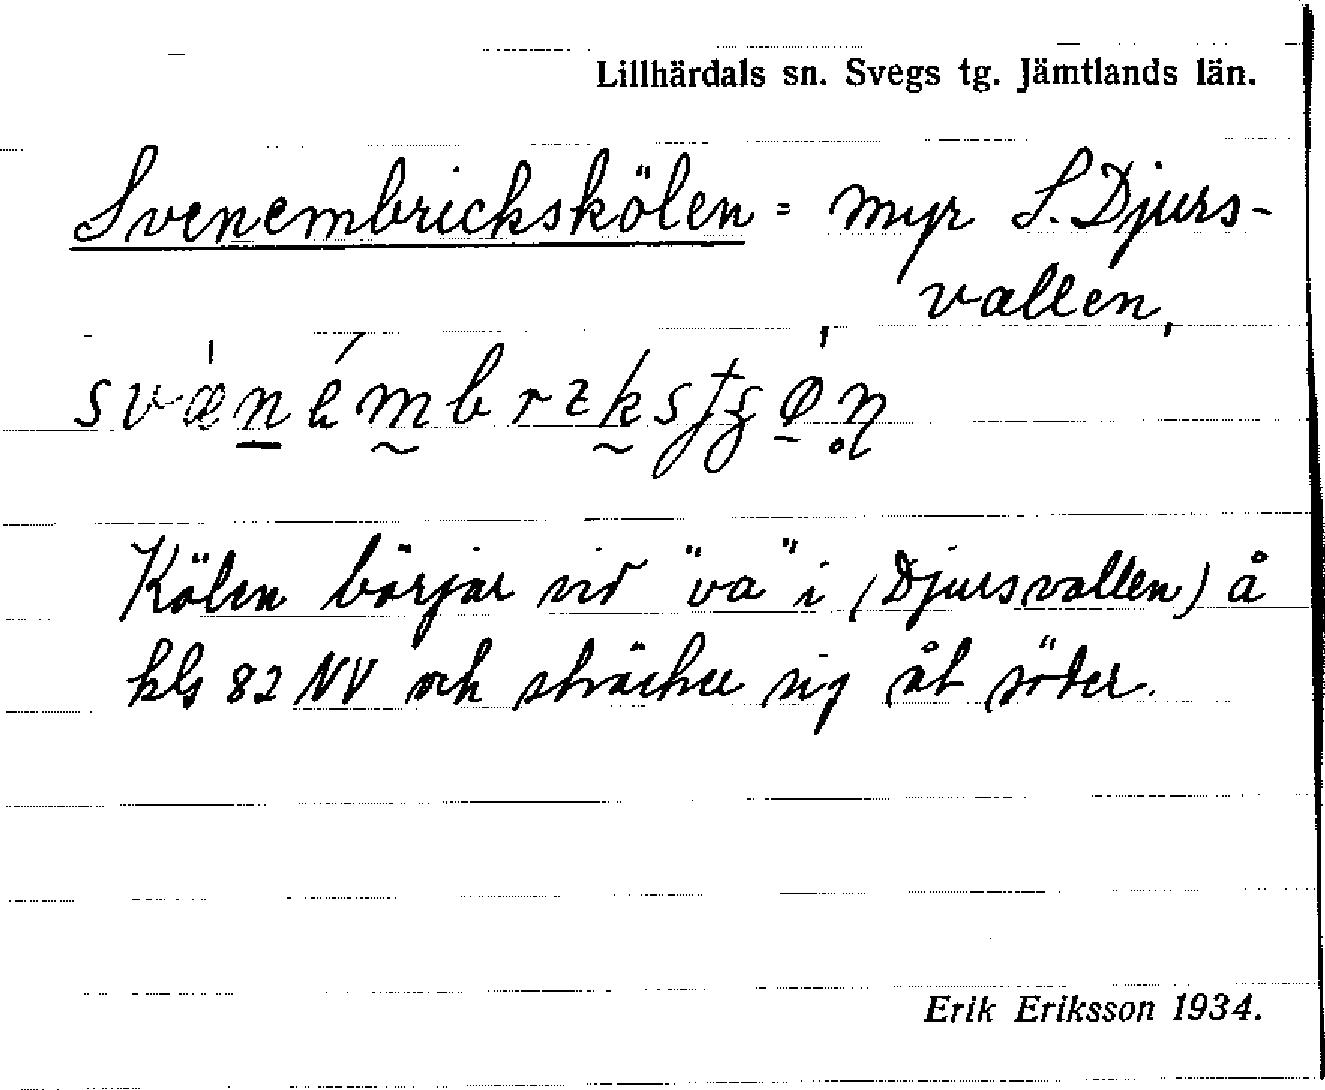 Lillhärdals sn. Svegs tg. Jämtlands län.
Svenembrickskölen = myr S. Djurs-
vallen,
Kölen börjar vid "va" i (Djursvallen) å
kbl 82 NV och sträcker sig åt söder.
Erik Eriksson 1934.